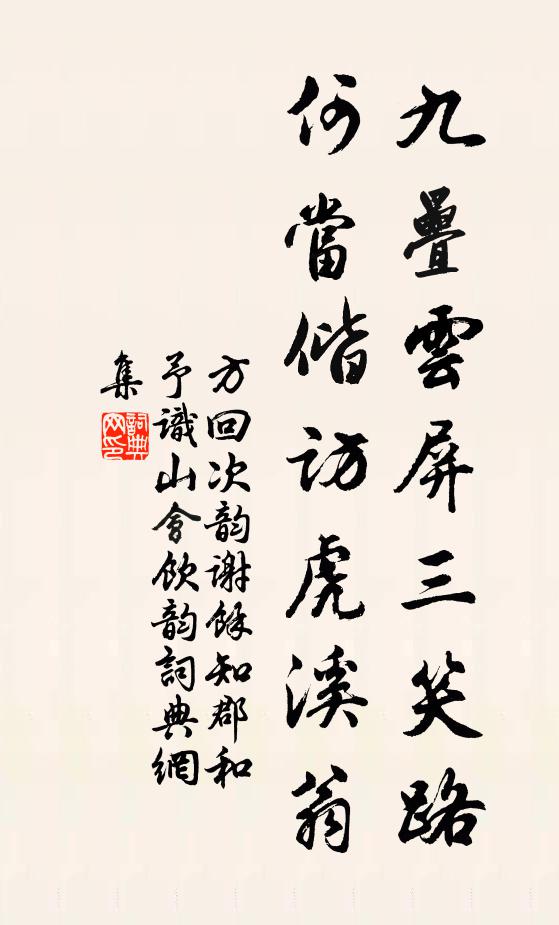 九疊雲屏三笑路
何當偕訪虎溪翁
方回次韵謝餘知郡和
予識山會飲韵詞典網
集
詞典
网印